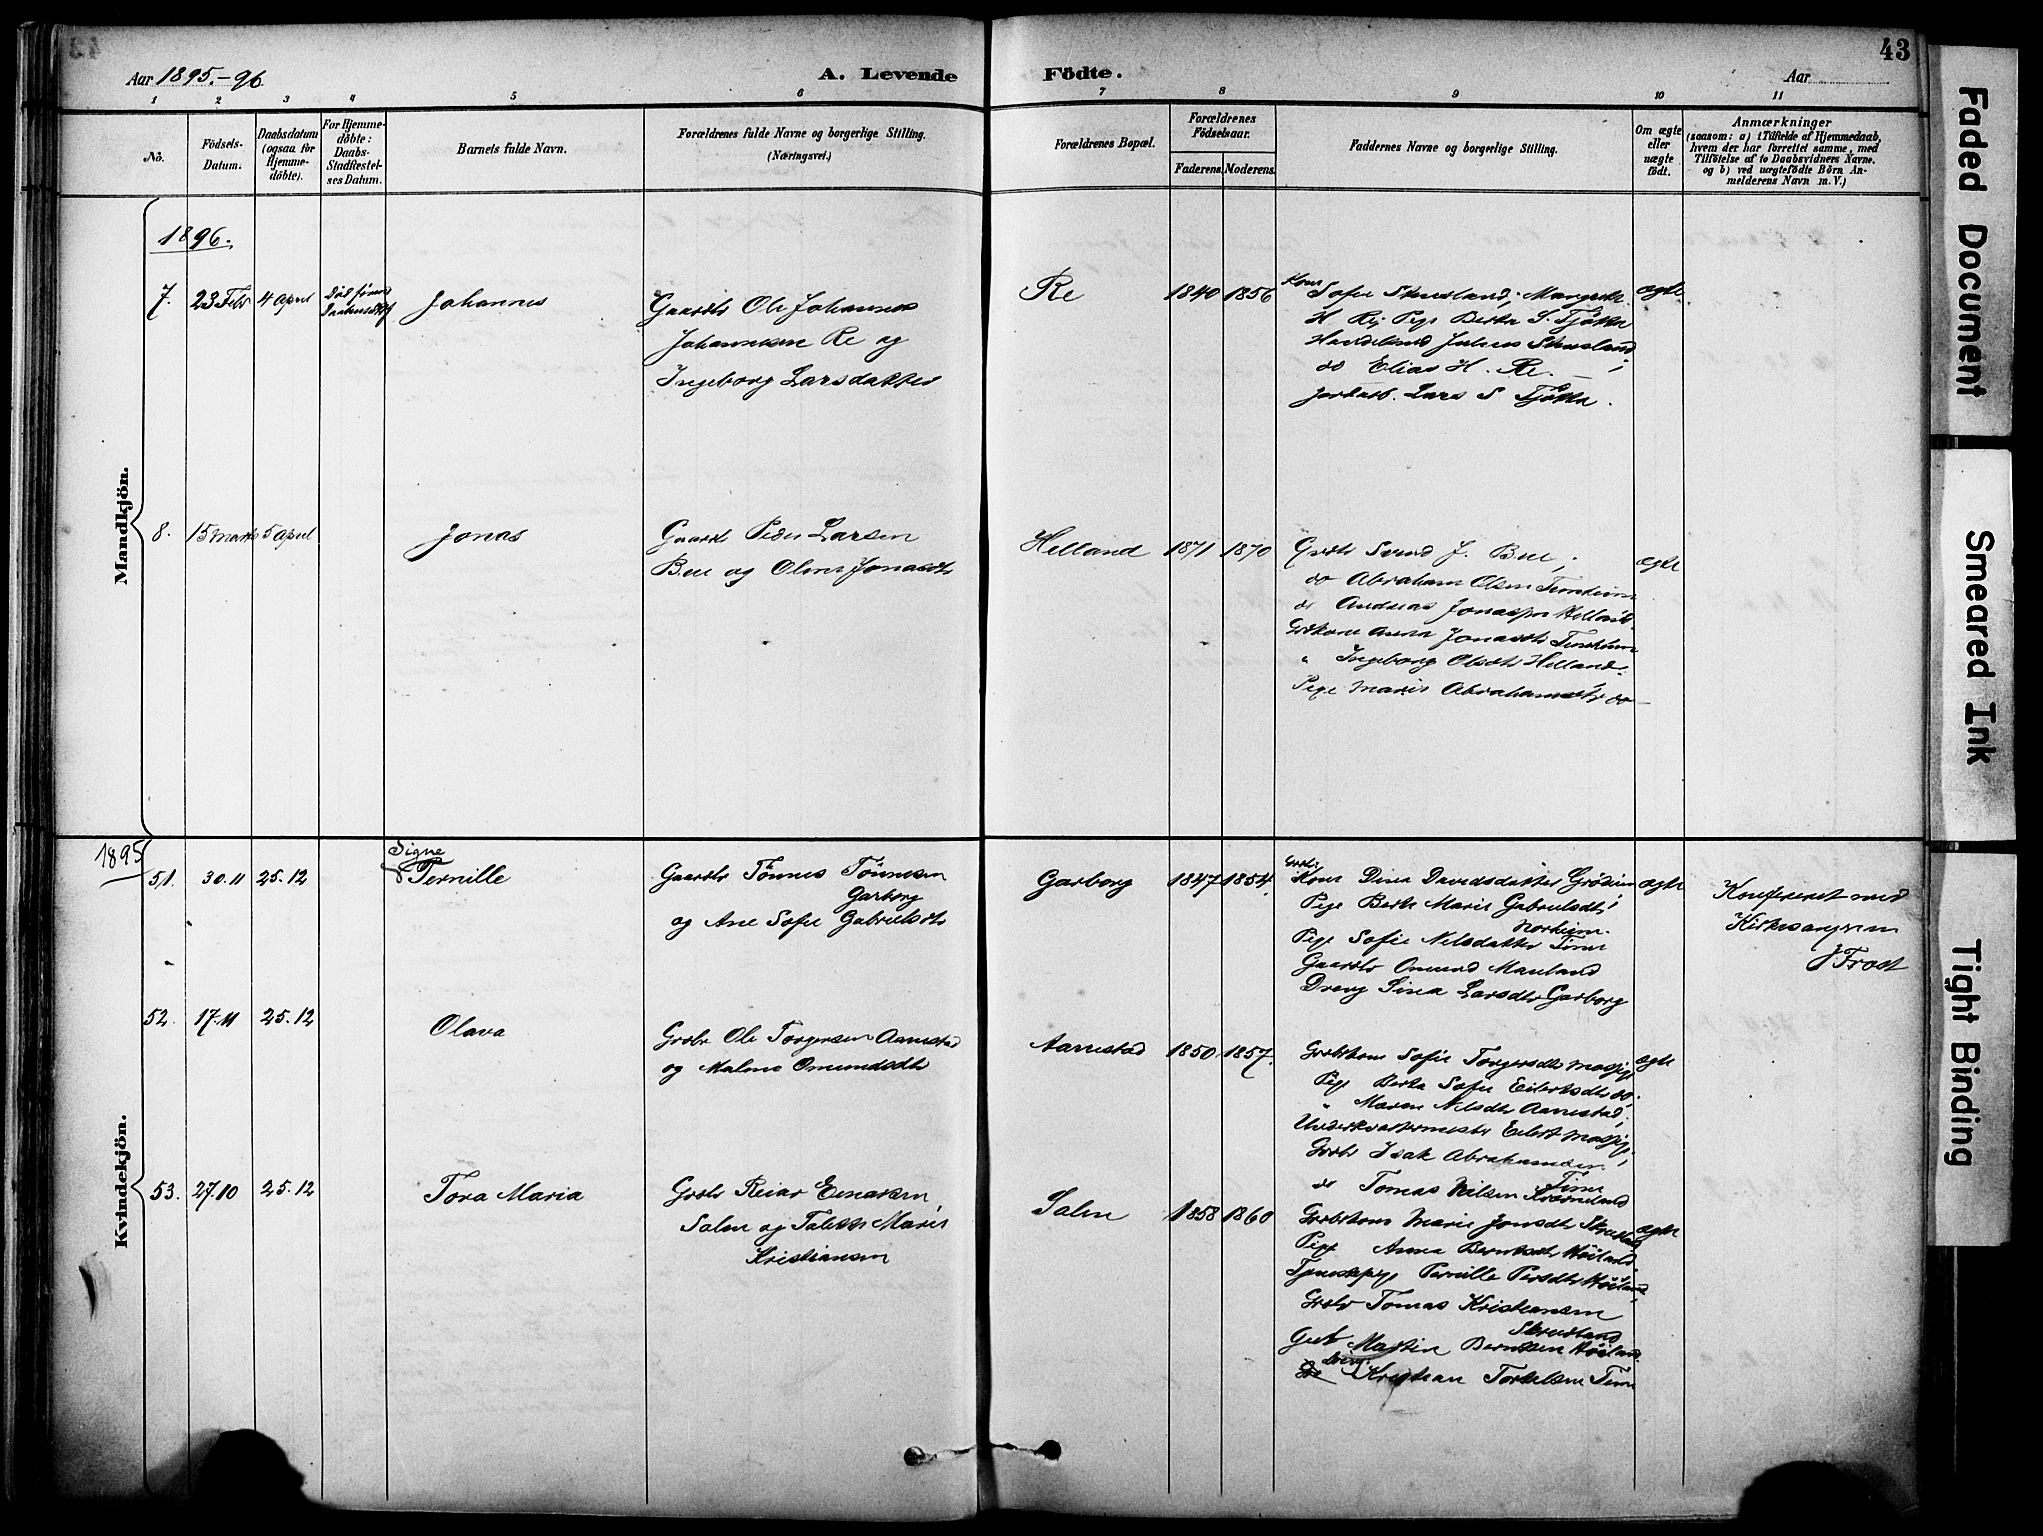 43
Aar 1895.-96.
A. Levende Födte.
Aar
1 2 3 4 5 6 7 8 9 10 11
No.
Födsels-Datum.
Daabsdatum (ogsaa for Hjemme-döbte).
For Hjemme-döbte: Daabs-Stadfæstel-ses Datum.
Barnets fulde Navn.
Forældrenes fulde Navne og borgerlige Stilling.
(Næringsvei.)
Forældrenes Bopæl.
Forældrenes Födselsaar.
Faderens. Moderens.
Faddernes Navne og borgerlige Stilling.
Om ægte eller uægte födt.
Anmærkninger
(saasom: a) i Tilfælde af Hjemmedaab,
hvem der har forrettet samme, med
Tilföielse af to Daabsvidners Navne,
og b) ved uægtefödte Börn An-
melderens Navn m. V.)
Mandkjön.
1896.
7. 23 Febr 4 april
Johannes
Gaardbr Ole Johannes
Johannesen Re og
Ingeborg Larsdatter
Re 1840 1856
Kone Sofie Skrudland, Margrete
H Re, Pige Berta S. Tjøtta
Skrudland
do Elias H. Re.
Lars S Tjøtta.
ægte
8. 15 Marts 5 april
Jonas
Gaardb Peder Larsen
Bue og Oline Jonasdtr
Helland 1871 1870
Grdbr Svend J. Bue,
do Abraham Olsen
do Andreas Jonassen Helland
Grdkone Anna Jonasdtr
" Ingeborg Olsdtr Helland
Pige Marie Abrahamsdtr do
ægte
Kvindekjön.
1895
51. 30.11 25.12
Signe
Pernille
Gaardbr Tönnes Tönnesen
Garborg
og Ane Sofie Gabrielsdtr
Garborg 1847 1854.
Grdbr. Kone Dina Davidsdatter Grödeim
Pige Berte Marie Gabrielsdtr
Norheim.
Pige Sofie Nilsdatter Time
Gaardbr Omund Mauland
Dreng Sina Larsdtr Garborg
ægte
Konfereret med
Kirkesangeren
J Frost
52. 17.11 25.12
Olava
Grdbr Ole Torgersen Aarrestad
og Malene Omundsdtr
Aarrestad 1850. 1857.
Grdbrkone Sofie Torgersdtr Mossige
Pige Berta Sofie Eilertsdtr do.
" Maren Nilsdtr Aarrestad,
Underkvartermester Eilert Mossige,
Grdbr Isak Abrahamsen
Time
do Tomas Nilsen
53. 27.10 25.12
Tora Maria
Grdbr Reiar Einarsen
Salen og Talette Marie
Kristiansen
Salen 1858 1860
Grdbrkone Marie Jonsdtr
Pige Anna Berntsdtr Höiland
Tjenestepige Pernille Persdtr Höiland,
Grdbr Tomas Kristiansen
Skrudland
Gut Martin Berntsen Höiland.
Dreng Kristian Torkelsen Time
ægte
Faded Document
Smeared Ink
Tight Binding